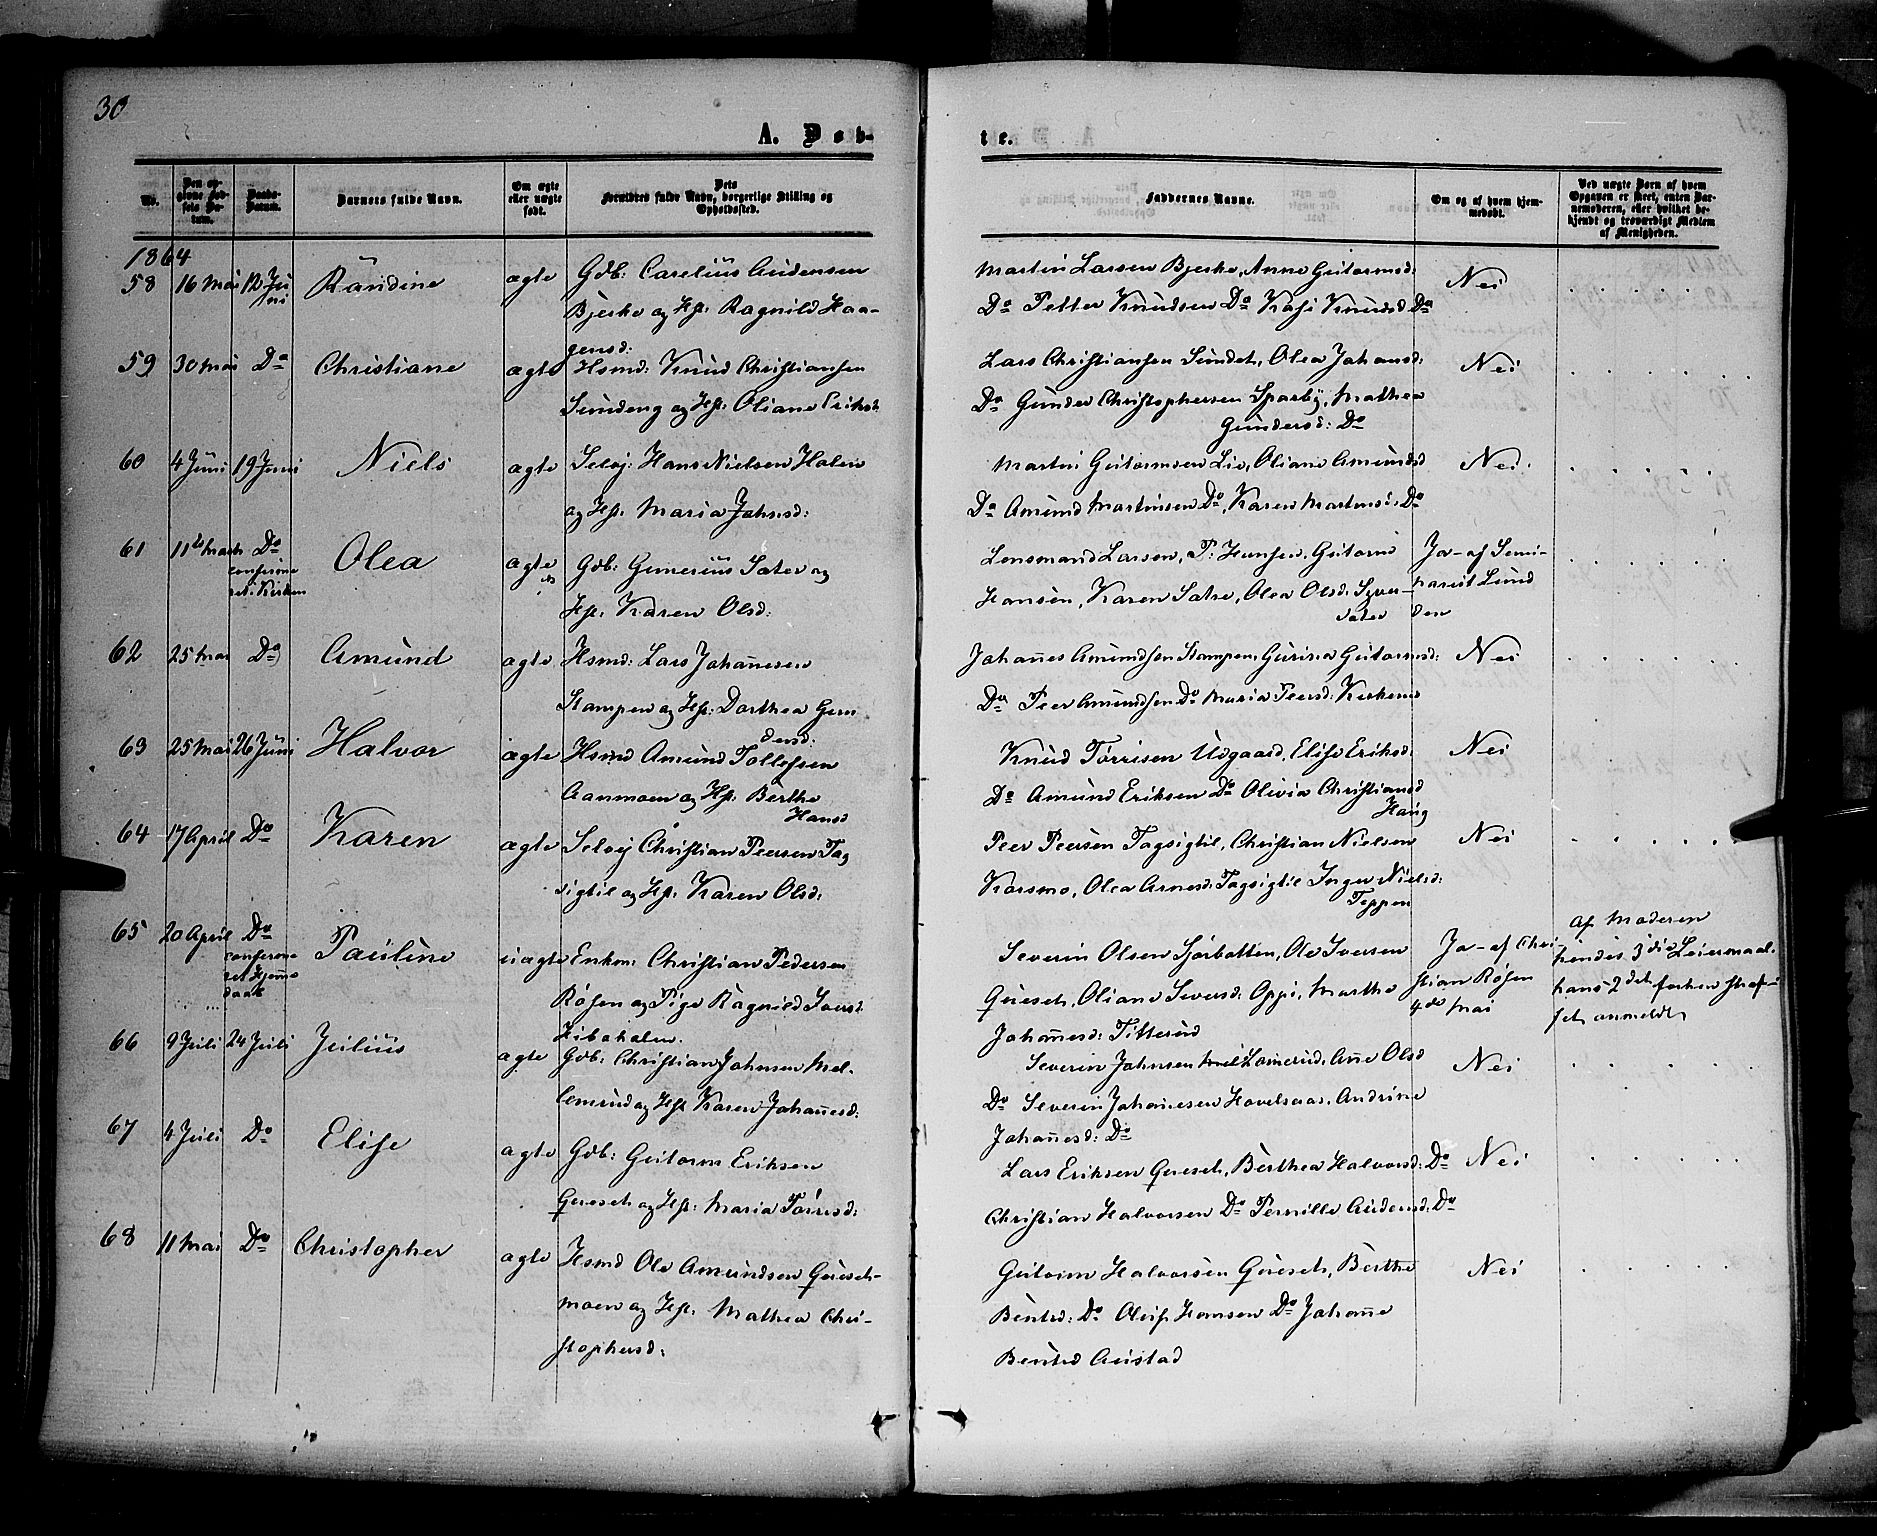 30
A. Døb-
te.
No.
Den op-
givne Fød-
sels Da-
tum.
Daabs-
Datum.
Barnets fulde Navn.
Om ægte
eller uægte
født.
Dets
Forældres fulde Navn, borgerlige Stilling og
Opholdssted.
Faddernes Navne.
Om og af hvem hjem-
medøbt.
Ved uægte Børn af hvem
Opgaven er skeet, enten Bar-
nemoderen, eller hvilket be-
kjendt og troværdigt Medlem
af Menigheden.
1864
58 16 Mai 12 Ju-
ni
Randine
ægte
Gdb: Carelius Audensen
Bjerke og Hst: Ragnild Haa-
gensd:
Martin Larsen Bjerke, Anne Guttormsd:
Do Petter Knudsen Do Kasi Knudsd Do
Nei
59 30 Mai Do
Christiane
ægte
Hsmd: Knud Christiansen
Sundeng og Hst: Oliane Eriksd:
Lars Christiansen Sundet, Olea Johansd:
Do Gunder Christophersen Sparby, Mathea
Gundersd: Do
Nei
60 4 Juni 19 Juni
Niels
ægte
Selvej: Hans Nielsen Holen
og Hst: Maria Johnsd:
Martin Guttormsen Lie, Oliane Amundsd
Do Amund Martinsen Do, Karen Martinsd: Do
Nei.
61 11te Marts Do
confirme
ret i Kirken
Olea
ægte
Gdb: Gunerius Sater og
Hst: Karen Olsd:
Lensmand Larsen, P: Hansen, Guttorm
Hansen, Karen Satre, Olea Olsd:
sater
Ja - af Semi-
narist Lund
den
62 25 Mai Do
Amund
ægte
Hsmd: Lars Johannesen
Stampen og Hst: Dorthea Gun
dersd:
Johannes Amundsen Stampen, Gurina Guttormsd:
Do Peer Amundsen Do Maria Peersd: Kirkerud
Nei
63 25 Mai 26 Juni
Halvor
ægte
Hsmd Amund Tollefsen
Aanmoen og Hst: Berthe
Hansd
Knud Torrisen Udgaard, Elise Eriksd:
Do Amund Eriksen Do Olivia Christiansd
Haug
Nei
64 17 April Do
Karen
ægte
Selvej Christian Peersen Tag
sigtil og Hst: Karen Olsd:
Peer Peersen Tagsigtil, Christian Nielsen
Korsmo, Olea Arnesd: Tagsigtil Inger Nielsd:
Teppen
Nei
65 20 April Do
confirme
ret Hjemme
daab
Pauline
uægte
Enkem: Christian Pedersen
Rosen og Pige Ragnild Iversd:
Severin Olsen Sjorbotten, Ole Iversen
Gresch, Oliane Iversd: Oppi, Marthe
Johannesd: Titterud
Ja - af Chri-
stian Rosen
4de Mai
Af Moderen
hendes 3die Leiermaal
hans 2det forhen straf-
fet, anmeldt
66 9 Juli 24 Juli
Julius
ægte
Gdb: Christian Johnsen Mel-
lemrud og Hst Karen Johannesd:
Severin Johnsen Lomerud, Ane Olsd
Do Severin Johannesen Hovelsaas, Andrine
Johannesd: Do
Nei
67 4 Juli Do
Elise
ægte
Gdb: Guttorm Eriksen
Gresch og Hst: Maria Torrisd:
Lars Eriksen Gresch, Berthea Halvorsd: Do
Christian Halvorsen Do Pernille Audensd: Do
Nei
68 11 Mai Do
Christopher
ægte
Hsmd Ole Amundsen Gresch-
moen og Hst: Mathea Chri-
stophersd:
Guttorm Halvorsen Gresch, Berthe
Bentsd: Do Oluf Hansen Do Johanne
Bentsd Austad
Nei